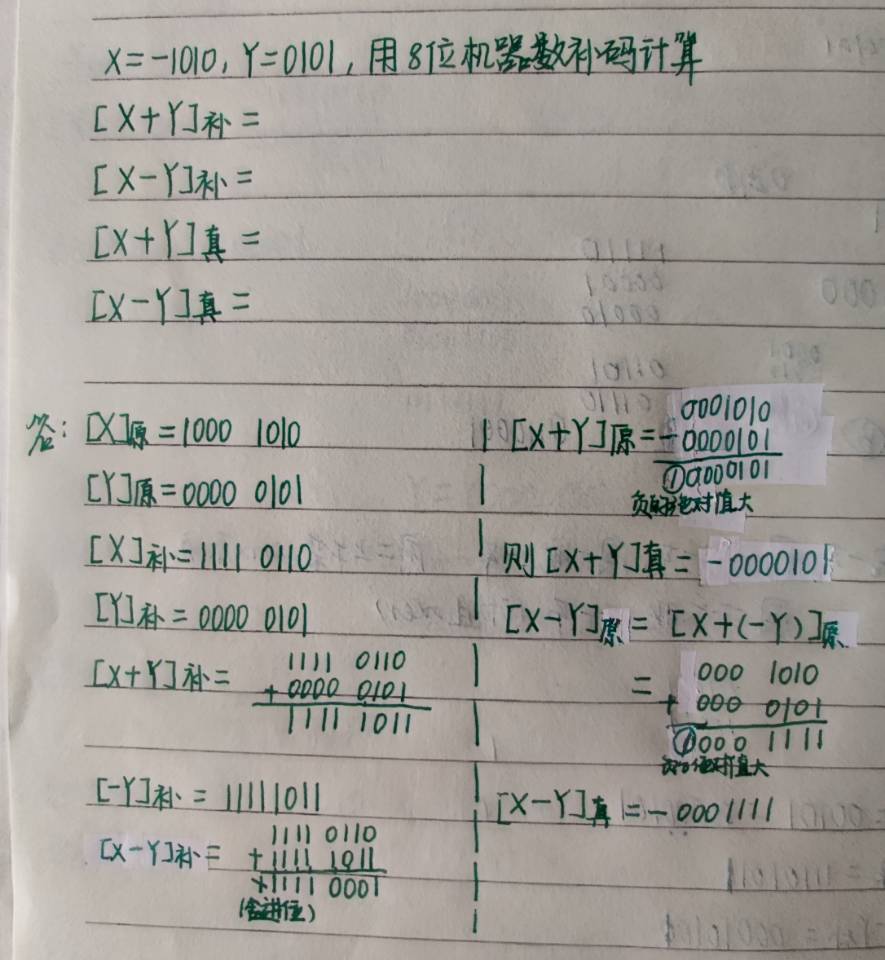 X=-1010, Y=0101, 用8位机器数补码计算
[X+Y]补=
[X-Y]补=
[X+Y]真=
[X-Y]真=
答: [X]原=1000 1010
[Y]原=0000 0101
[X]补=1111 0110
[Y]补=0000 0101
[X+Y]补= 1111 0110
+0000 0101
1111 1011
[-Y]补=11111011
[X-Y]补= 1111 0110
+1111 1011
1111 0001
(舍进位)
[X+Y]原= 0001010
-0000101
①0000101
绝对值大
则[X+Y]真=-0000101
[X-Y]原=[X+(-Y)]原
= 000 1010
+ 000 0101
①000 1111
绝对值大
[X-Y]真=-0001111